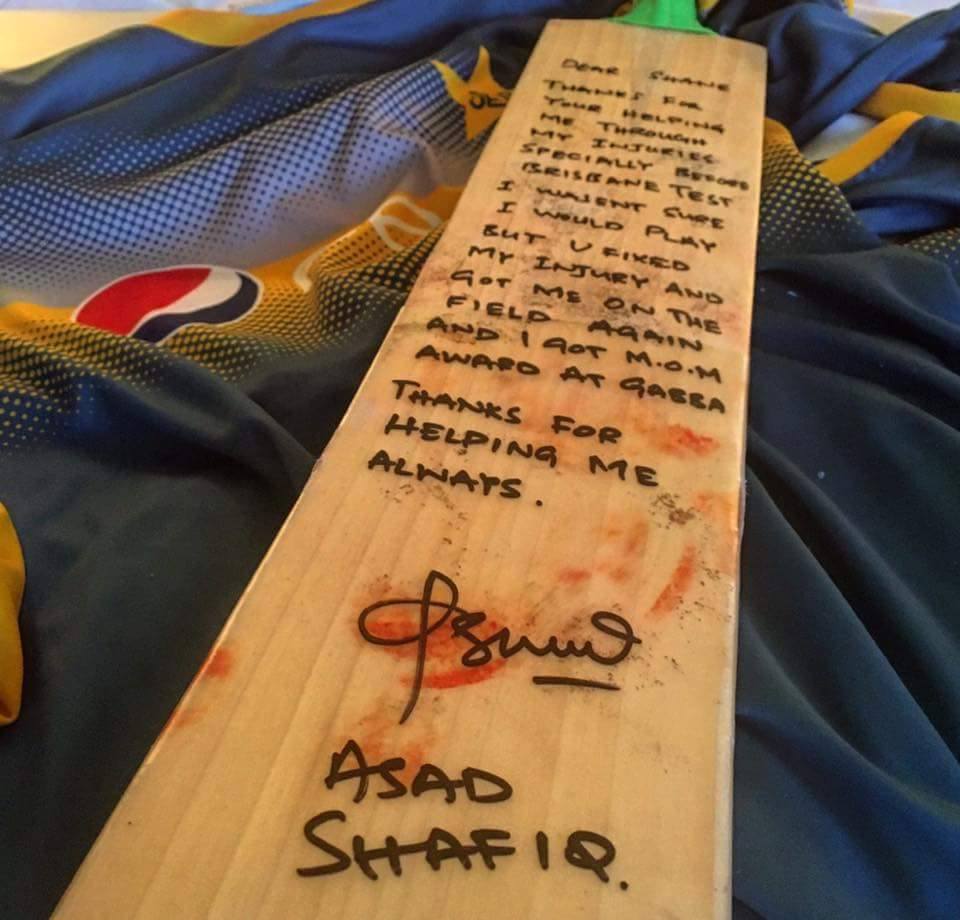 DEAR SHANE
THANKS FOR
YOUR HELPING
ME THROUGH
MY INJURIES
SPECIALLY BEFORE
BRISBANE TEST
I WASENT SURE
I WOULD PLAY
BUT U FIXED
MY INJURY AND
GOT ME ON THE
FIELD AGAIN
AND I GOT M.O.M
AWARD AT GABBA
THANKS FOR
HELPING ME
ALWAYS.
ASAD
SHAFIQ.